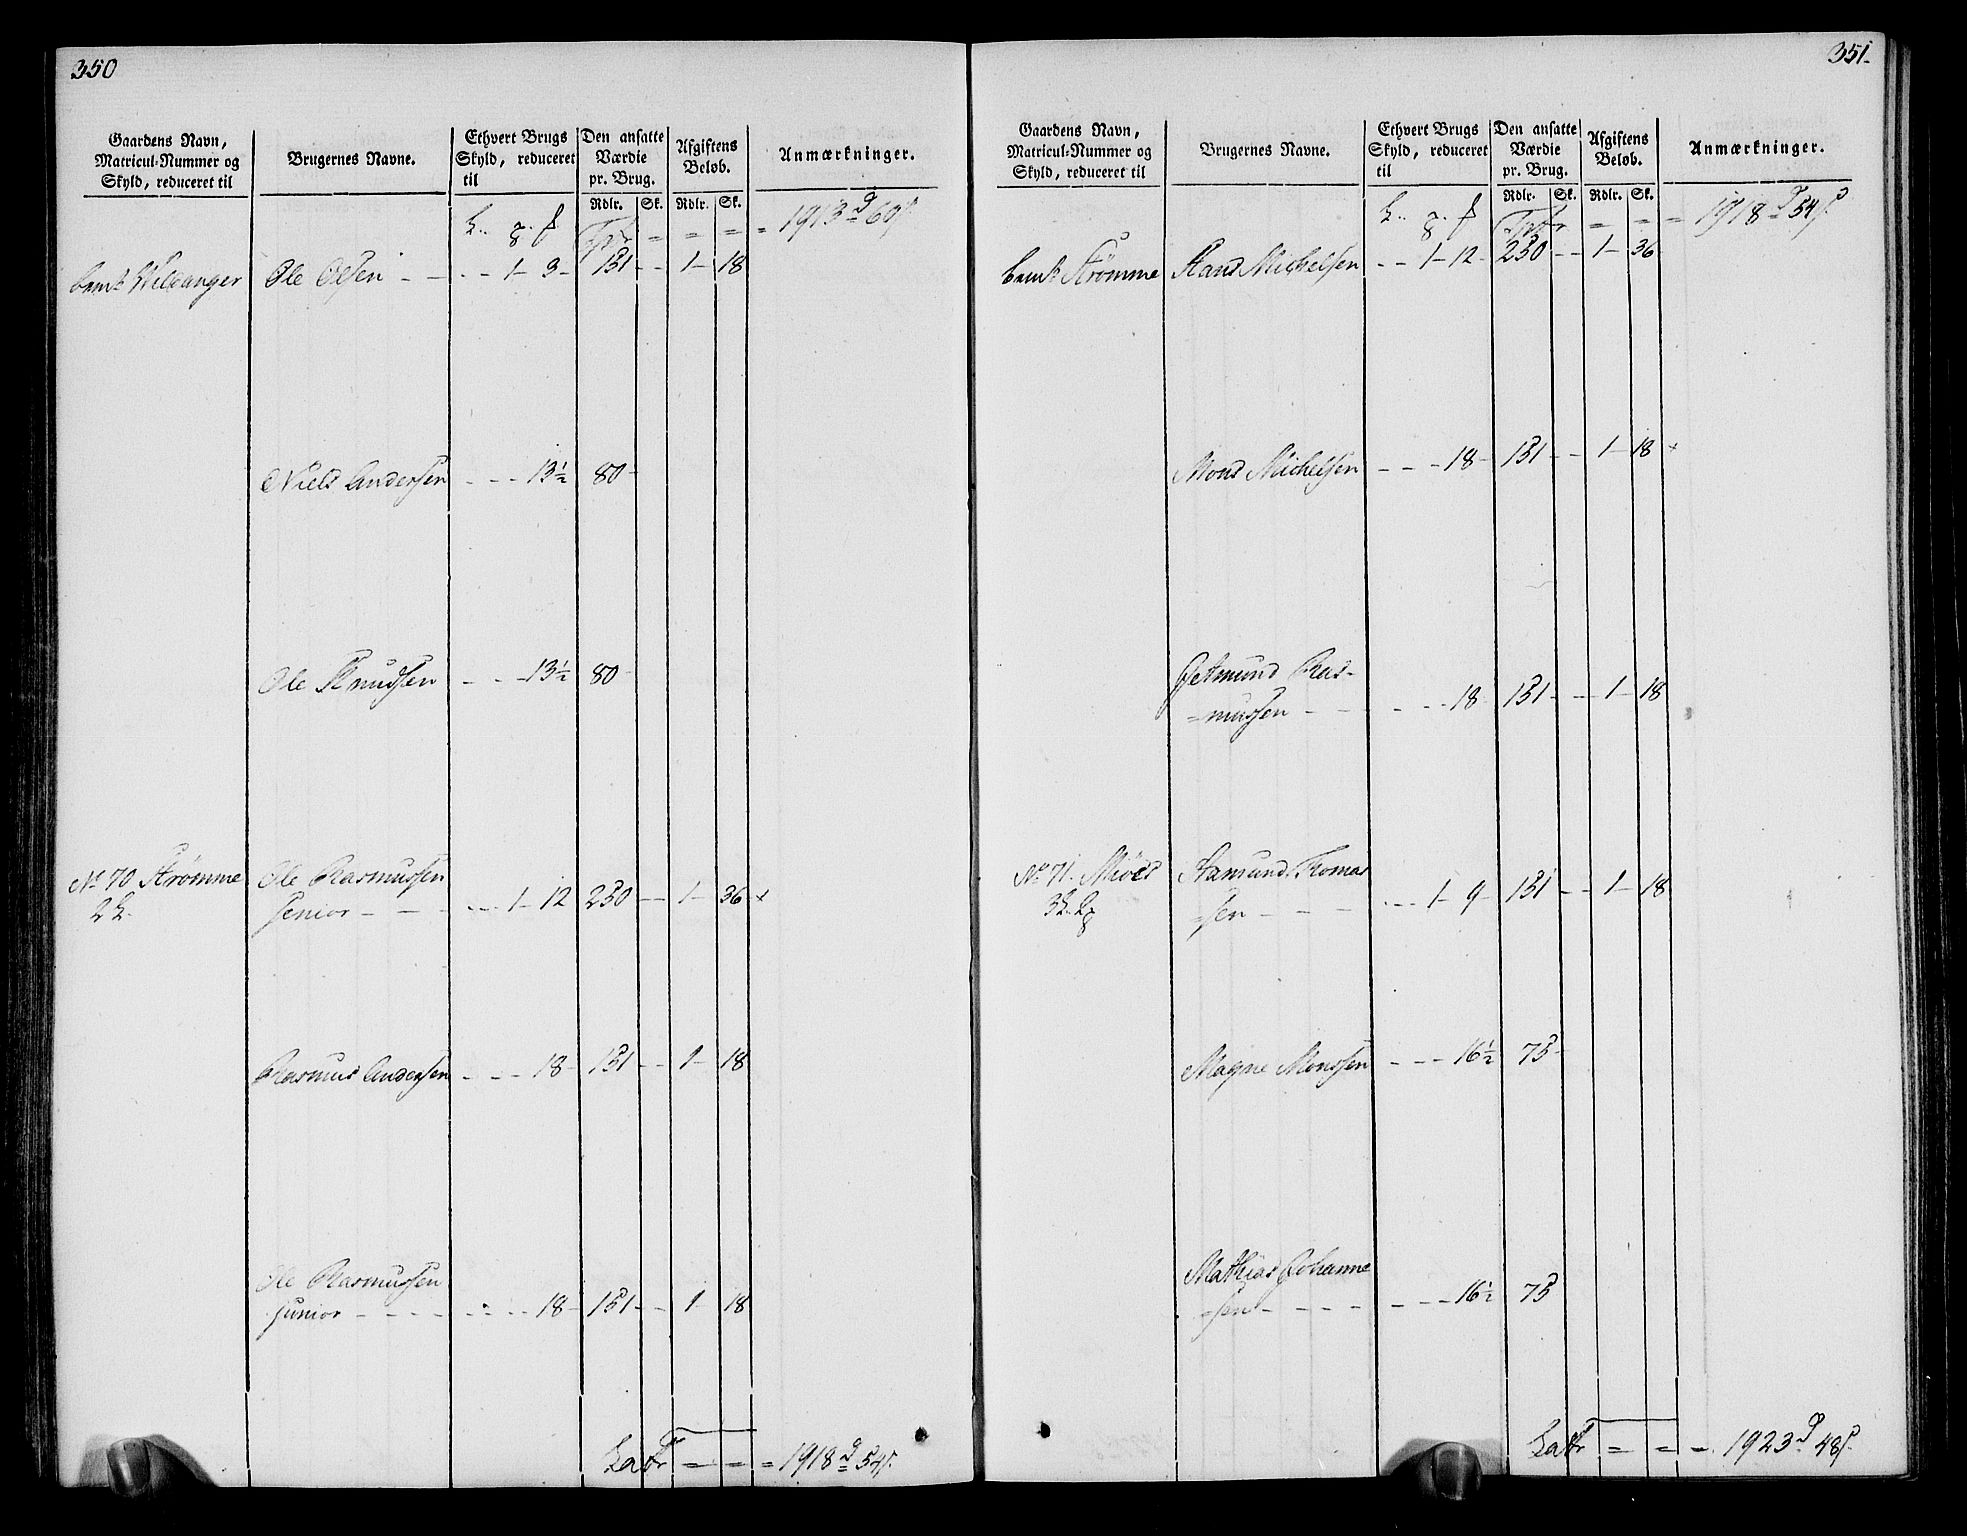 350
Gaardens Navn, Matricul-Nummer og Skyld, reduceret til
Brugernes Navne.
Ethvert Brugs Skyld, reduceret til
Den ansatte Værdie pr. Brug.
Afgiftens Beløb.
Anmærkninger.
Rdlr. Sk. Rdlr. Sk.
Tpr = = = = 1913 d 60 s.
Ole Olsen - - - - 1 - 3 - 151 - - 1 - 18
Niels Andersen - - - 13½ 80 -
Ole Knudsen - - - 13½ 80 -
No 70 Strømme Ole Rasmussen
senior - - - - - 1 - 12 250 - - 1 - 36 +
Rasmus Andersen - - - 18 - 151 - - 1 - 18
Ole Rasmussen
junior - - - - - - - 18 - 151 - - 1 - 18
Latr = = = 1918 d 54 s.
351.
Gaardens Navn, Matricul-Nummer og Skyld, reduceret til
Brugernes Navne.
Ethvert Brugs Skyld, reduceret til
Den ansatte Værdie pr. Brug.
Afgiftens Beløb.
Anmærkninger.
Rdlr. Sk. Rdlr. Sk.
Tpr = = = = 1918 d 54 s.
Strømme Hans Michelsen - - 1 - 12 - 250 - - 1 - 36
Mons Michelsen - - - 18 - 151 - - 1 - 18 +
Ras-
=mussen - - - - - 18 - 151 - - 1 - 18
No 71. Miøes Aamund Thomas
=sen - - - - - - 1 - 9 - 151 - - 1 - 18
Magne Monssen - - - 16½ 75 -
Mathias Johanne
=sen - - - - - - - 16½ 75
Latr = = = 1923 d 48 s.